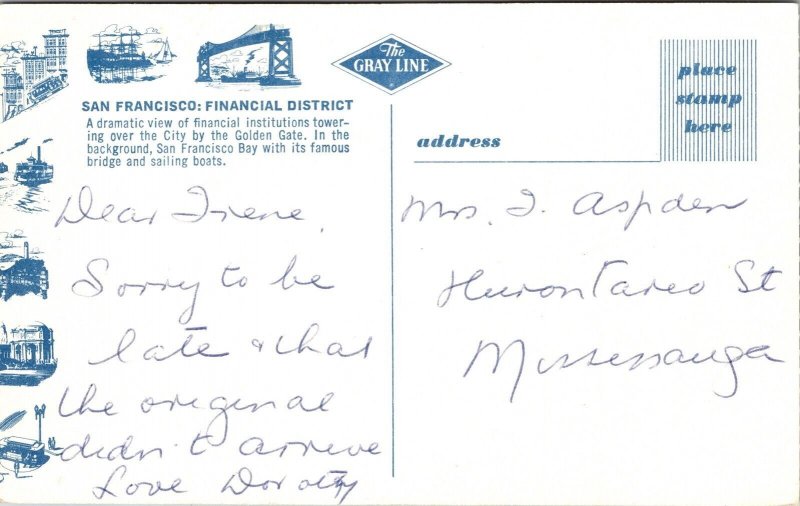 The
GRAY LINE
SAN FRANCISCO: FINANCIAL DISTRICT
A dramatic view of financial institutions tower-
ing over the City by the Golden Gate. In the
background, San Francisco Bay with its famous
bridge and sailing boats.
place
stamp
here
address
Dear Irene,
Sorry to be
late & that
the original
didn't arrive
Love Dorothy
Mrs. I. Aspden
Hurontareo St
Mississauga